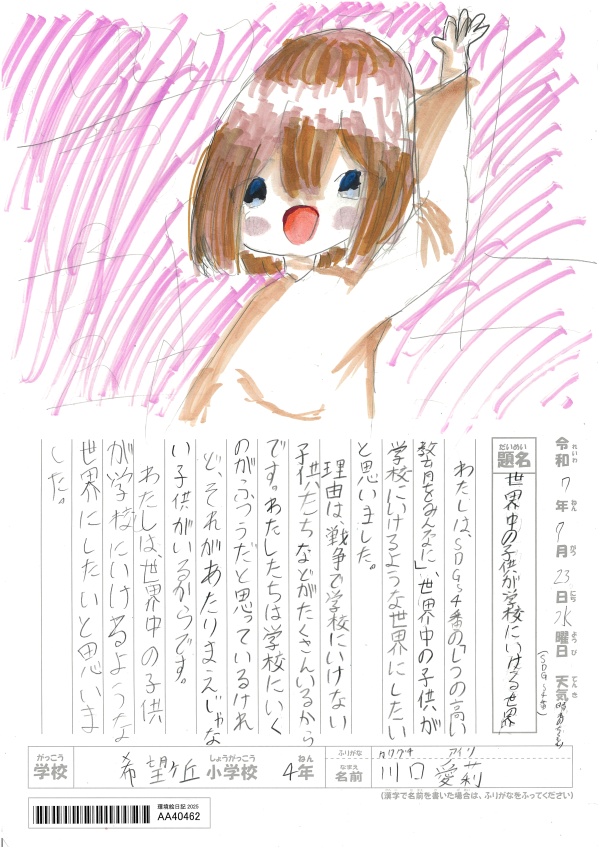 令和7年7月23日水曜日 天気
れいわ ねん がつ にち ようび てんき
だいめい
題名 世界中の子供が学校にいける世界
(SDGs4番)
わたしは、SDGs4番の「しつの高い
教育をみんなに」、世界中の子供が
学校にいけるような世界にしたい
と思いました。
理由は、戦争で学校にいけない
子供たちなどがたくさんいるから
です。わたしたちは学校にいく
のがふつうだと思っているけれ
ど、それがあたりまえじゃな
い子供がいるからです。
わたしは、世界中の子供
が学校にいけるような
世界にしたいと思いま
した。
がっこう しょうがっこう ねん ふりがな カワグチ アイリ
学校 希望ケ丘小学校 4年 なまえ 名前 川口愛莉
(漢字で名前を書いた場合は、ふりがなをふってください)
環境絵日記 2025
AA40462